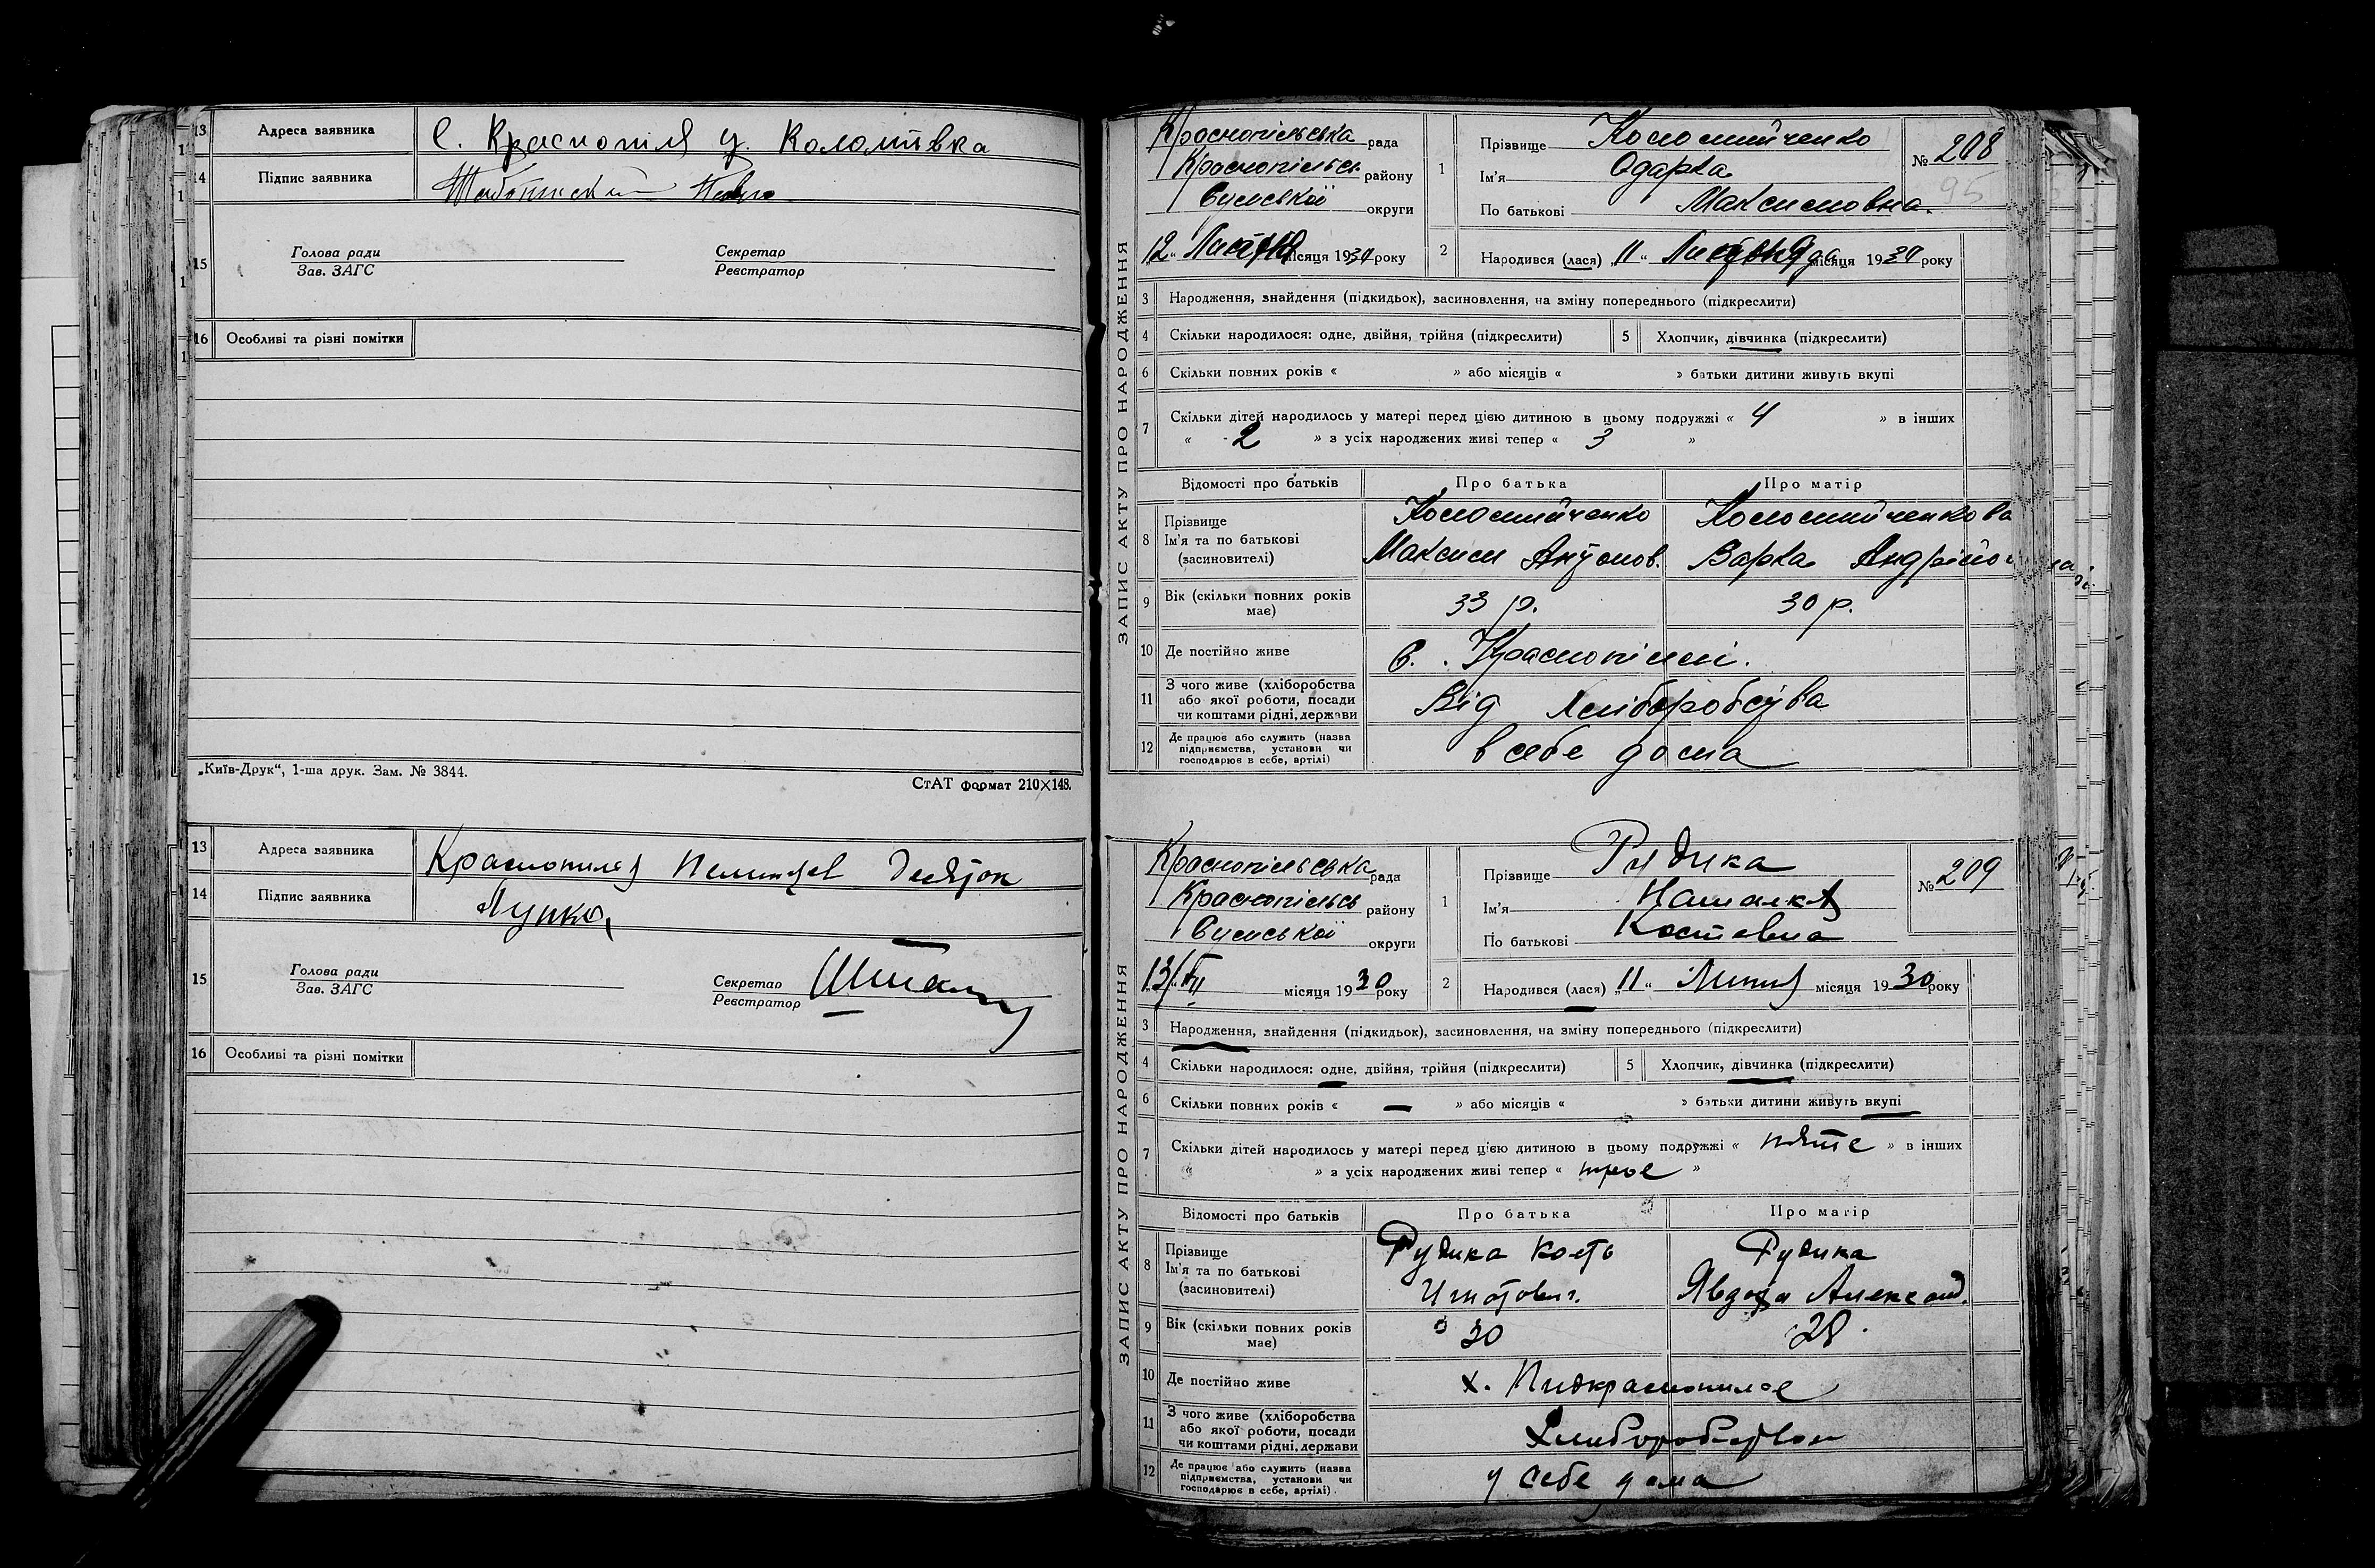 13 Адреса заявника С. Краснопілля
14 Підпис заявника
15 Голова ради Секретар
Зав. ЗАГС Реєстратор
16 Особливі та різні помітки
„Київ-Друк“, 1-ша друк. Зам. № 3844.
СтАТ формат 210×148.
13 Адреса заявника Краснопилля
14 Підпис заявника
15 Голова ради Секретар
Зав. ЗАГС Реєстратор
16 Особливі та різні помітки
ЗАПИС АКТУ ПРО НАРОДЖЕННЯ
Краснопільська рада
Краснопільськ району
Сумської округи
1 Прізвище Коломийченко
Ім'я Одарка
По батькові Максимовна.
№ 208
95
„12“ місяця 1930 року
2 Народився (лася) „11“ місяця 1930 року
3 Народження, знайдення (підкидьок), засиновлення, на зміну попереднього (підкреслити)
4 Скільки народилося: одне, двійня, трійня (підкреслити) 5 Хлопчик, дівчинка (підкреслити)
6 Скільки повних років « » або місяців « » батьки дитини живуть вкупі
7 Скільки дітей народилось у матері перед цією дитиною в цьому подружжі « 4 » в інших
« - 2 » з усіх народжених живі тепер « 3 »
Відомості про батьків Про батька Про матір
8 Прізвище Коломийченко Коломийченкова
Ім'я та по батькові Максим Антонов. Варка
(засновителі)
9 Вік (скільки повних років має) 33 р. 30 р.
10 Де постійно живе С. Краснопіллі.
11 З чого живе (хліборобства або якої роботи, посади чи коштами рідні, держави Від Хліборобства
12 Де працює або служить (назва підприємства, установи чи господарює в себе, артілі) в себе дома
ЗАПИС АКТУ ПРО НАРОДЖЕННЯ
Краснопільська рада
Краснопільськ району
Сумської округи
1 Прізвище Рудика
Ім'я Наталка
По батькові Костевна
№ 209
„13“ VII місяця 1930 року
2 Народився (лася) „11“ Липня місяця 1930 року
3 Народження, знайдення (підкидьок), засиновлення, на зміну попереднього (підкреслити)
4 Скільки народилося: одне, двійня, трійня (підкреслити) 5 Хлопчик, дівчинка (підкреслити)
6 Скільки повних років « — » або місяців « » батьки дитини живуть вкупі
7 Скільки дітей народилось у матері перед цією дитиною в цьому подружжі « пяте » в інших
« » з усіх народжених живі тепер « трое »
Відомості про батьків Про батька Про матір
8 Прізвище Рудика Кость Рудика
Ім'я та по батькові Игнатович. Явдоха Александ.
(засновителі)
9 Вік (скільки повних років має) 30 28
10 Де постійно живе х. Пидкраснопилое
11 З чого живе (хліборобства або якої роботи, посади чи коштами рідні, держави Хлиборобство
12 Де працює або служить (назва підприємства, установи чи господарює в себе, артілі). у себе дома